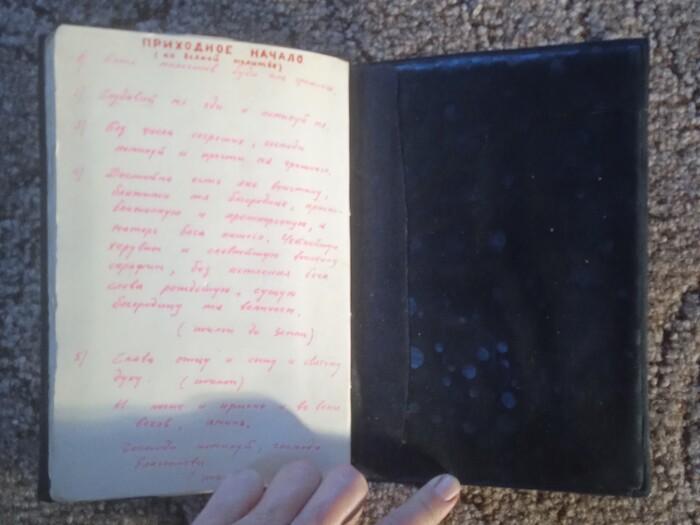 ПРИХОДНОЕ НАЧАЛО
(на всякой молитве)
1) Боже милостив буди мне грешному.
2) Создавый мя
и помилуй мя.
3) Без числа согреших, господи
помилуй и прости мя грешного.
4) Достойно есть яко воистину,
блажити тя богородице, присно
блаженную и пренепорочную, и
матерь бога нашего. Честнейшую
херувим и славнейшую воистину
серафим, без истления бога
слова рождшую, сущую
богородицу тя величаем.
(поклон до земли)
5) Слава отцу и сыну и святому
духу. (поклон)
И ныне и присно и во веки
веков, аминь.
Господи помилуй, господи